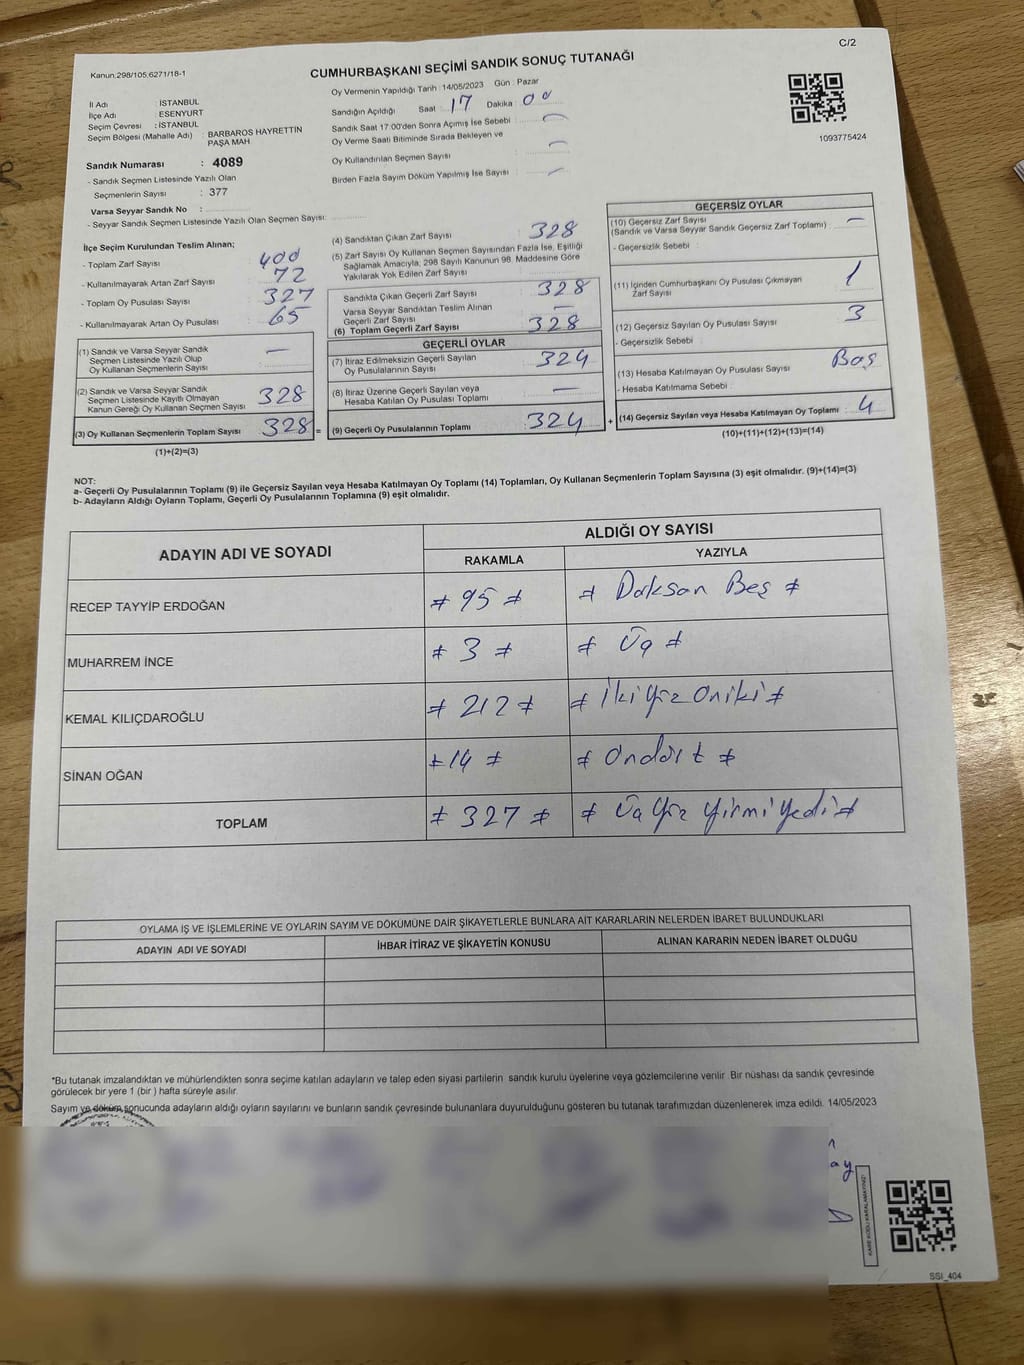 C/2
Kanun.298/105.6271/18-1
CUMHURBAŞKANI SEÇİMİ SANDIK SONUÇ TUTANAĞI
İl Adı : İSTANBUL
İlçe Adı : ESENYURT
Seçim Çevresi : İSTANBUL
Seçim Bölgesi (Mahalle Adı) : BARBAROS HAYRETTİN
PAŞA MAH
Sandık Numarası : 4089
- Sandık Seçmen Listesinde Yazılı Olan
Seçmenlerin Sayısı : 377
Varsa Seyyar Sandık No :
- Seyyar Sandık Seçmen Listesinde Yazılı Olan Seçmen Sayısı:
Oy Vermenin Yapıldığı Tarih :14/05/2023 Gün : Pazar
Sandığın Açıldığı Saat : 17 Dakika : 00
Sandık Saat 17:00'den Sonra Açımış İse Sebebi :
Oy Verme Saati Bitiminde Sırada Bekleyen ve
Oy Kullandırılan Seçmen Sayısı :
Birden Fazla Sayım Döküm Yapılmış İse Sayısı :
1093775424
İlçe Seçim Kurulundan Teslim Alınan;
- Toplam Zarf Sayısı : 400
- Kullanılmayarak Artan Zarf Sayısı : 72
- Toplam Oy Pusulası Sayısı : 327
- Kullanılmayarak Artan Oy Pusulası : 65
(1) Sandık ve Varsa Seyyar Sandık
Seçmen Listesinde Yazılı Olup
Oy Kullanan Seçmenlerin Sayısı : —
(2) Sandık ve Varsa Seyyar Sandık
Seçmen Listesinde Kayıtlı Olmayan
Kanun Gereği Oy Kullanan Seçmen Sayısı : 328
(3) Oy Kullanan Seçmenlerin Toplam Sayısı : 328 =
(1)+(2)=(3)
(4) Sandıktan Çıkan Zarf Sayısı : 328
(5) Zarf Sayısı Oy Kullanan Seçmen Sayısından Fazla İse, Eşitliği
Sağlamak Amacıyla, 298 Sayılı Kanunun 98. Maddesine Göre
Yakılarak Yok Edilen Zarf Sayısı :
Sandıkta Çıkan Geçerli Zarf Sayısı : 328
Varsa Seyyar Sandıktan Teslim Alınan
Geçerli Zarf Sayısı : —
(6) Toplam Geçerli Zarf Sayısı : 328
GEÇERLİ OYLAR
(7) İtiraz Edilmeksizin Geçerli Sayılan
Oy Pusulalarının Sayısı : 324
(8) İtiraz Üzerine Geçerli Sayılan veya
Hesaba Katılan Oy Pusulası Toplamı : —
(9) Geçerli Oy Pusulalarının Toplamı : 324 +
GEÇERSİZ OYLAR
(10) Geçersiz Zarf Sayısı
(Sandık ve Varsa Seyyar Sandık Geçersiz Zarf Toplamı) : —
- Geçersizlik Sebebi :
(11) İçinden Cumhurbaşkanı Oy Pusulası Çıkmayan
Zarf Sayısı : 1
(12) Geçersiz Sayılan Oy Pusulası Sayısı : 3
- Geçersizlik Sebebi :
(13) Hesaba Katılmayan Oy Pusulası Sayısı : Boş
- Hesaba Katılmama Sebebi :
(14) Geçersiz Sayılan veya Hesaba Katılmayan Oy Toplamı : 4
(10)+(11)+(12)+(13)=(14)
NOT:
a- Geçerli Oy Pusulalarının Toplamı (9) ile Geçersiz Sayılan veya Hesaba Katılmayan Oy Toplamı (14) Toplamları, Oy Kullanan Seçmenlerin Toplam Sayısına (3) eşit olmalıdır. (9)+(14)=(3)
b- Adayların Aldığı Oyların Toplamı, Geçerli Oy Pusulalarının Toplamına (9) eşit olmalıdır.
ADAYIN ADI VE SOYADI
ALDIĞI OY SAYISI
RAKAMLA YAZIYLA
RECEP TAYYİP ERDOĞAN ≠ 95 ≠ ≠ Doksan Beş ≠
MUHARREM İNCE ≠ 3 ≠ ≠ Üç ≠
KEMAL KILIÇDAROĞLU ≠ 212 ≠ ≠ İkiyüz Oniki ≠
SİNAN OĞAN ≠ 14 ≠ ≠ Ondört ≠
TOPLAM ≠ 327 ≠ ≠ Üçyüz Yirmi Yedi ≠
OYLAMA İŞ VE İŞLEMLERİNE VE OYLARIN SAYIM VE DÖKÜMÜNE DAİR ŞİKAYETLERLE BUNLARA AİT KARARLARIN NELERDEN İBARET BULUNDUKLARI
ADAYIN ADI VE SOYADI İHBAR İTİRAZ VE ŞİKAYETİN KONUSU ALINAN KARARIN NEDEN İBARET OLDUĞU
*Bu tutanak imzalandıktan ve mühürlendikten sonra seçime katılan adayların ve talep eden siyasi partilerin sandık kurulu üyelerine veya gözlemcilerine verilir. Bir nüshası da sandık çevresinde
görülecek bir yere 1 (bir ) hafta süreyle asılır.
Sayım ve döküm sonucunda adayların aldığı oyların sayılarını ve bunların sandık çevresinde bulunanlara duyurulduğunu gösteren bu tutanak tarafımızdan düzenlenerek imza edildi. 14/05/2023
ay
KARE KODU KARALAMAYINIZ!
SSI_404